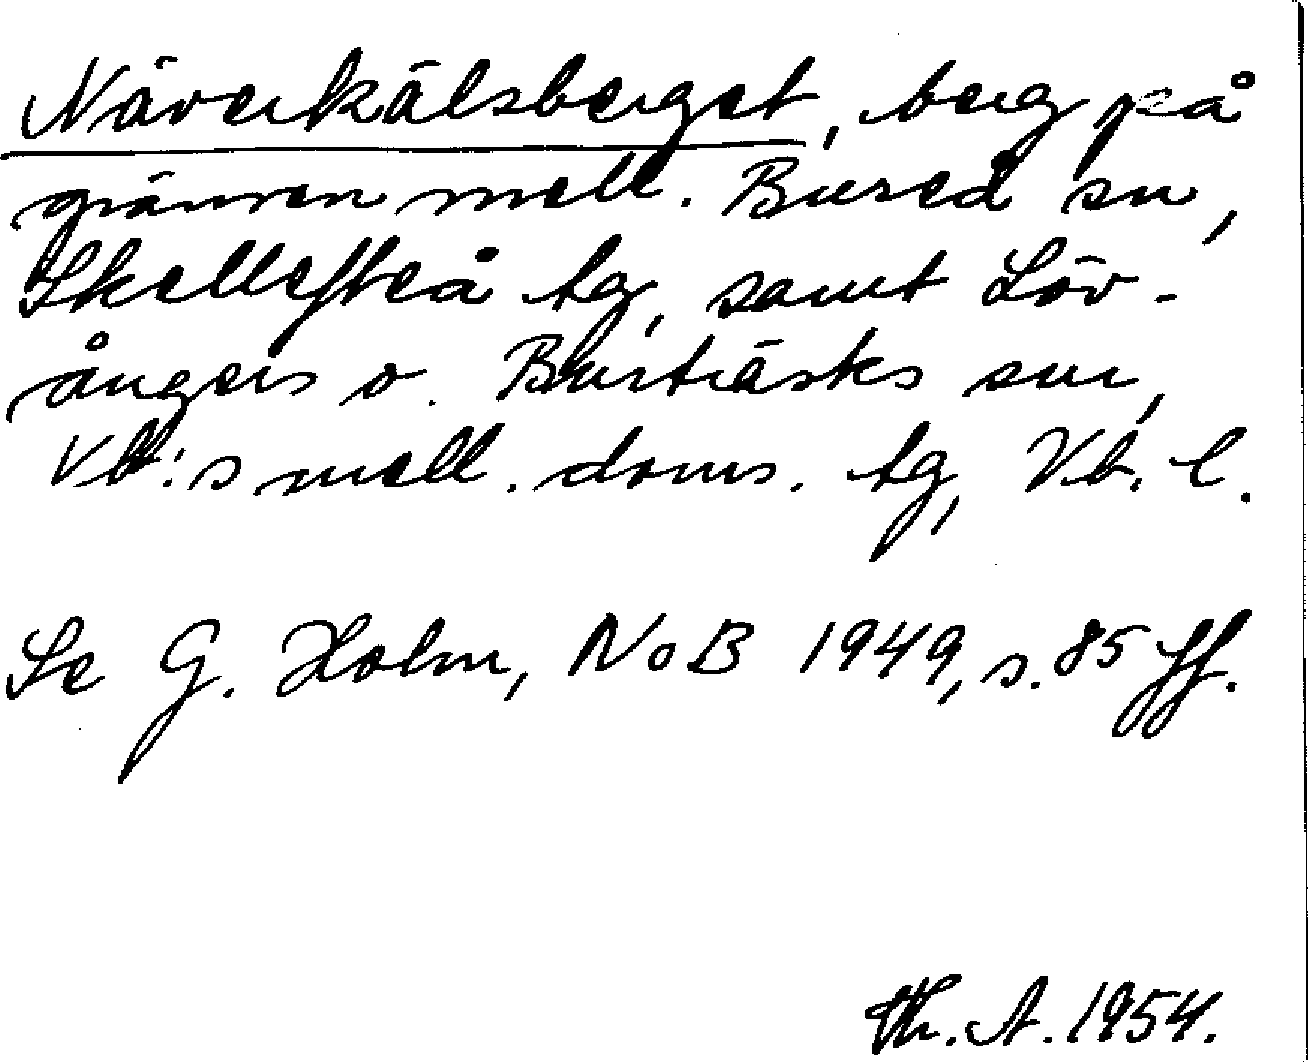 Näverkälsberget, berg på
gränsen mell. Bureå sn,
Skellefteå tg, samt Löv-
ångers o. Burträsks snr,
Vb:s mell. doms. tg, Vb. l.
Se G. Holm, NoB 1949, s. 85 ff.
Th. A. 1954.